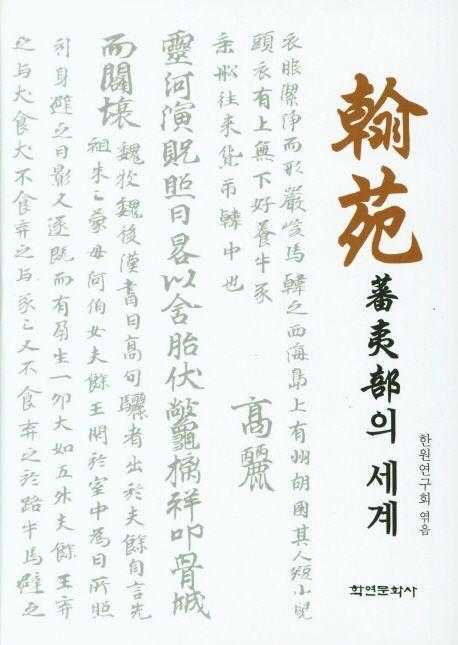 翰苑
蕃夷部의 세계
한원연구회 엮음
학연문화사
衣服潔淨而形嚴峻馬韓之西海島上有州胡國其人短小髡
頭衣有上無下好養牛豕
乘船往來貨市韓中也
高麗
靈河演貺照日晷以含胎伏鼈摛祥叩骨城
而闢壤
魏牧魏後漢書曰高句驪者出於夫餘自言先
祖朱〻蒙母河伯女夫餘王閇於室中為日所照
引身避之日影又逐既而有孕生一卵大如五升夫餘王弃
之与犬食犬不食弃之与豕〻又不食弃之於路牛馬避之